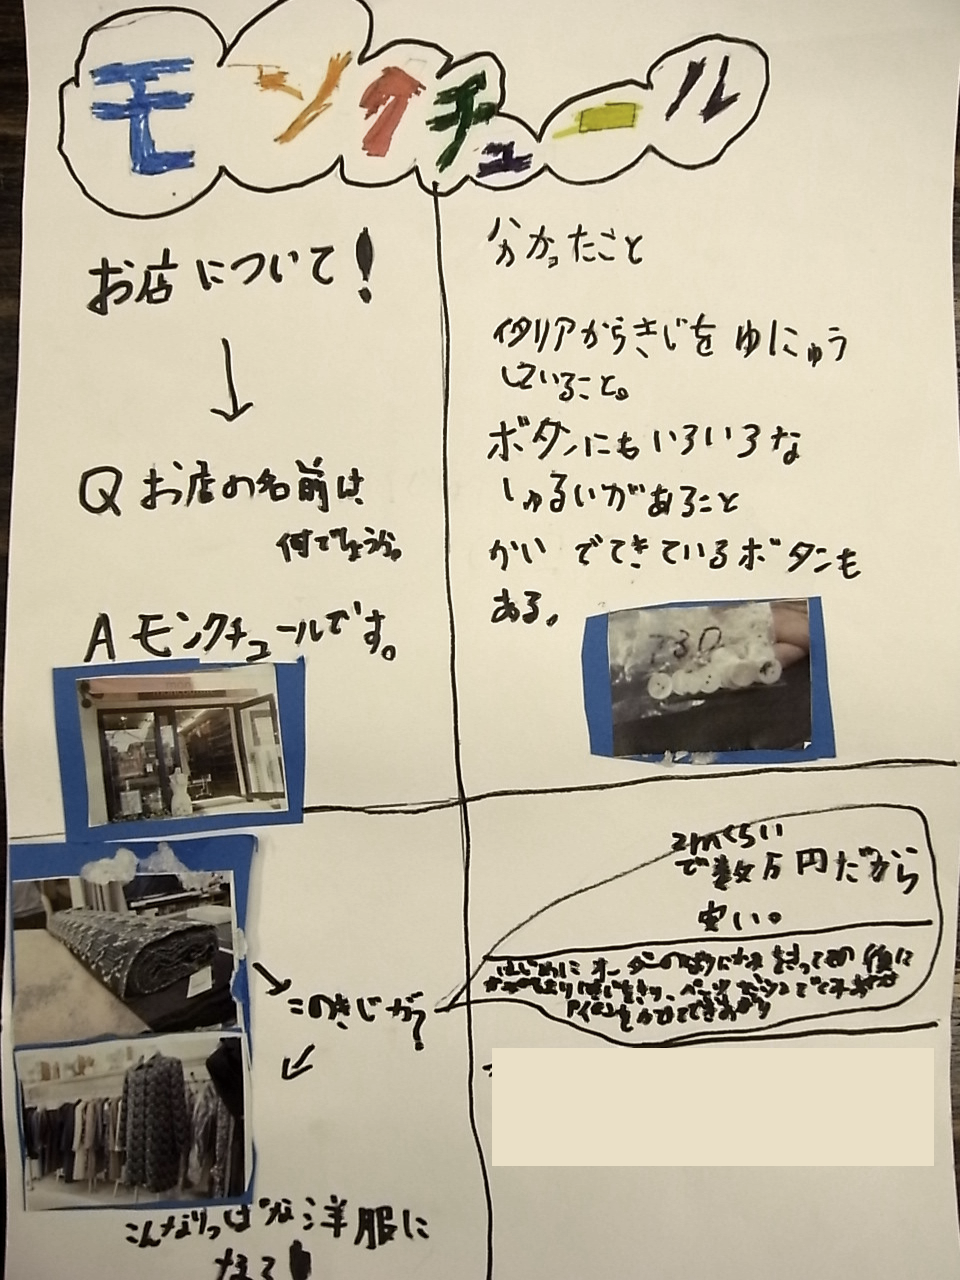 モンクチュール
お店について!
Q お店の名前は
何でしょうか。
A モンクチュールです。
分かったこと
イタリアからきじを ゆにゅう
していること。
ボタンにも いろいろな
しゅるいがあること
かい でできているボタンも
ある。
730
2mくらい
で数万円だから
安い。
はじめに オーダーの
アイロンをかけてできあがり
このきじが?
こんなりっぱな洋服に
なるて!